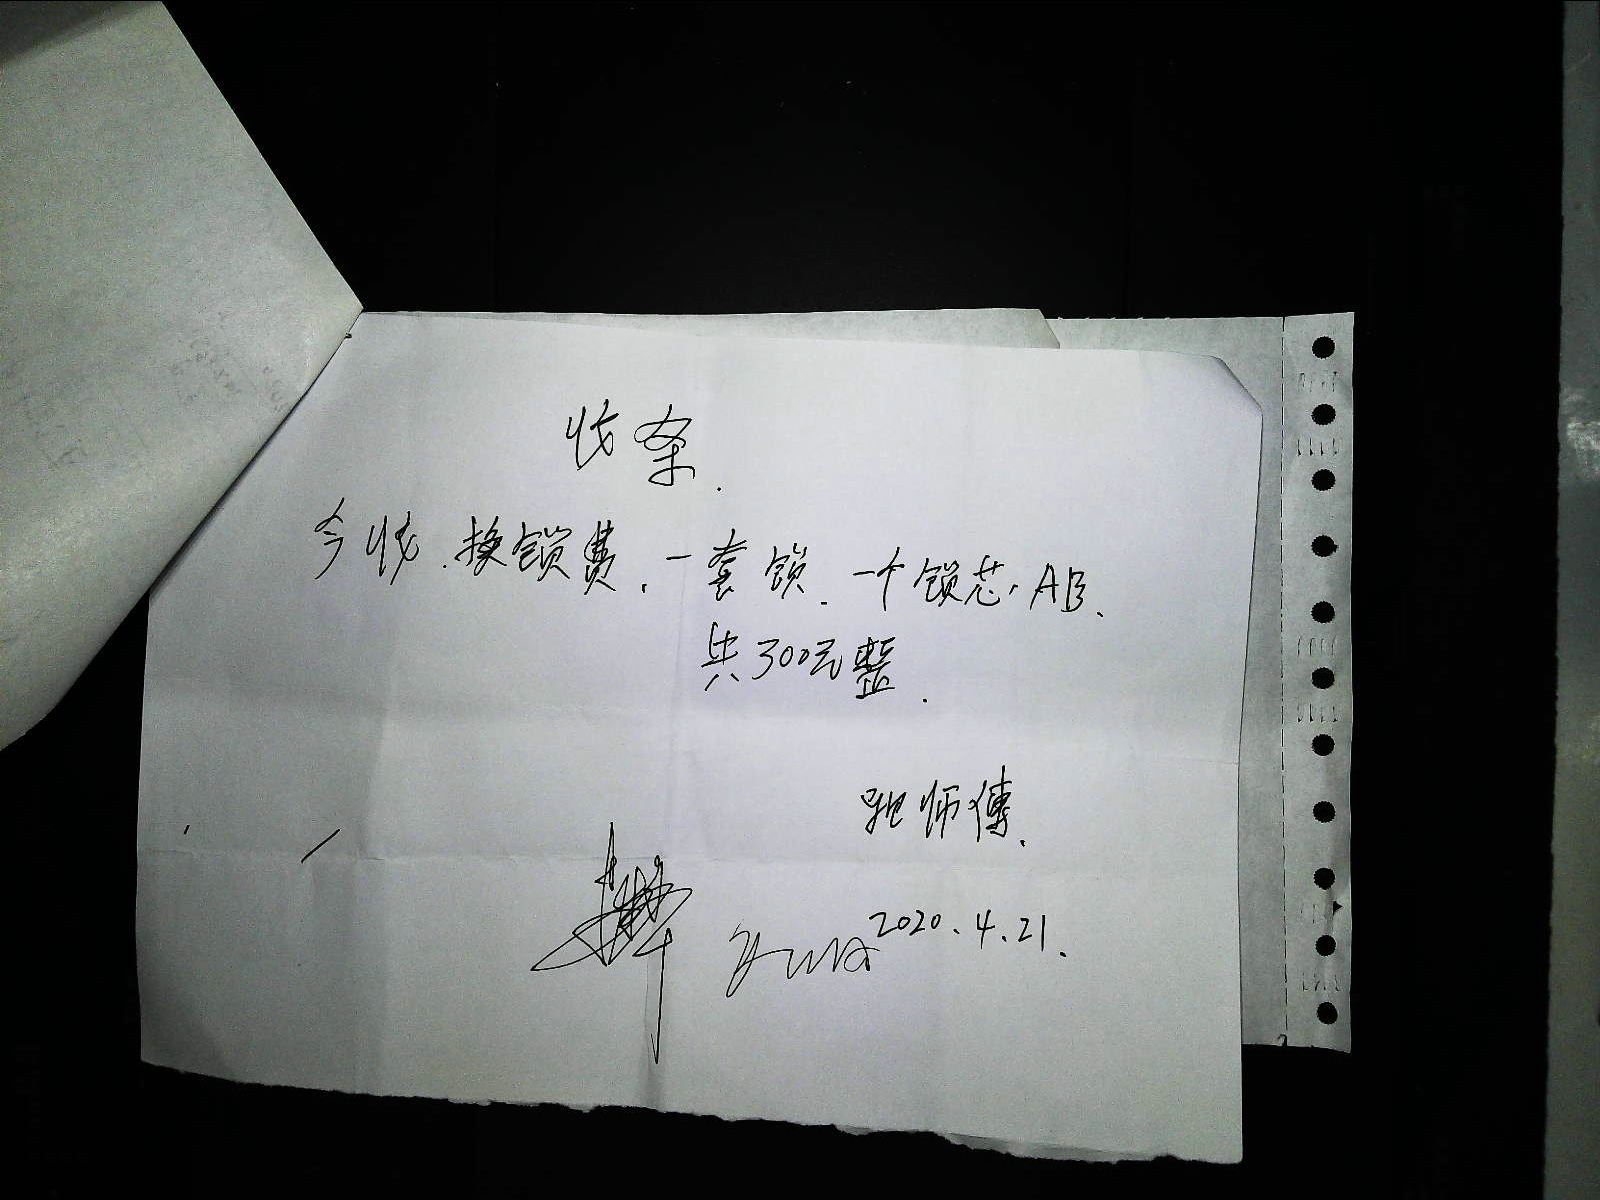 收条.
今收.换锁费.一套锁.一个锁芯.AB.
共300元整.
师傅.
2020.4.21.